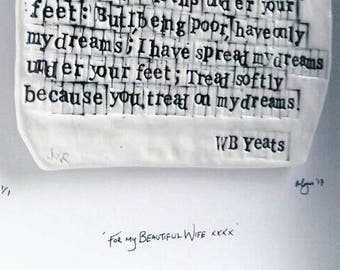 under your
feet: But I being poor, have only
my dreams; I have spread my dreams
under your feet; Tread softly
because you tread on my dreams!
WB Yeats
1/1
'FOR MY BEAUTIFUL WIFE xxxx'